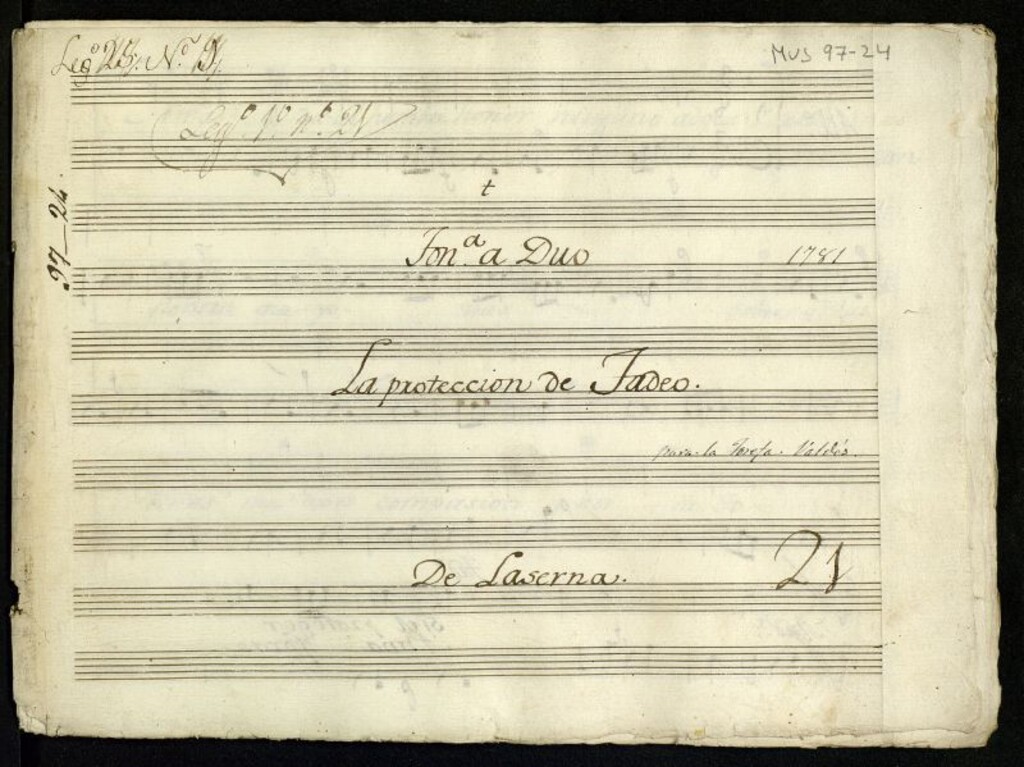 Leg.º 23. N.º 9.
MUS 97-24
Leg.º 1.º n.º 21
97-24
+
Ton.ª a Duo
1781
La proteccion de Tadeo.
para la Teresa Valdés.
De Laserna.
21